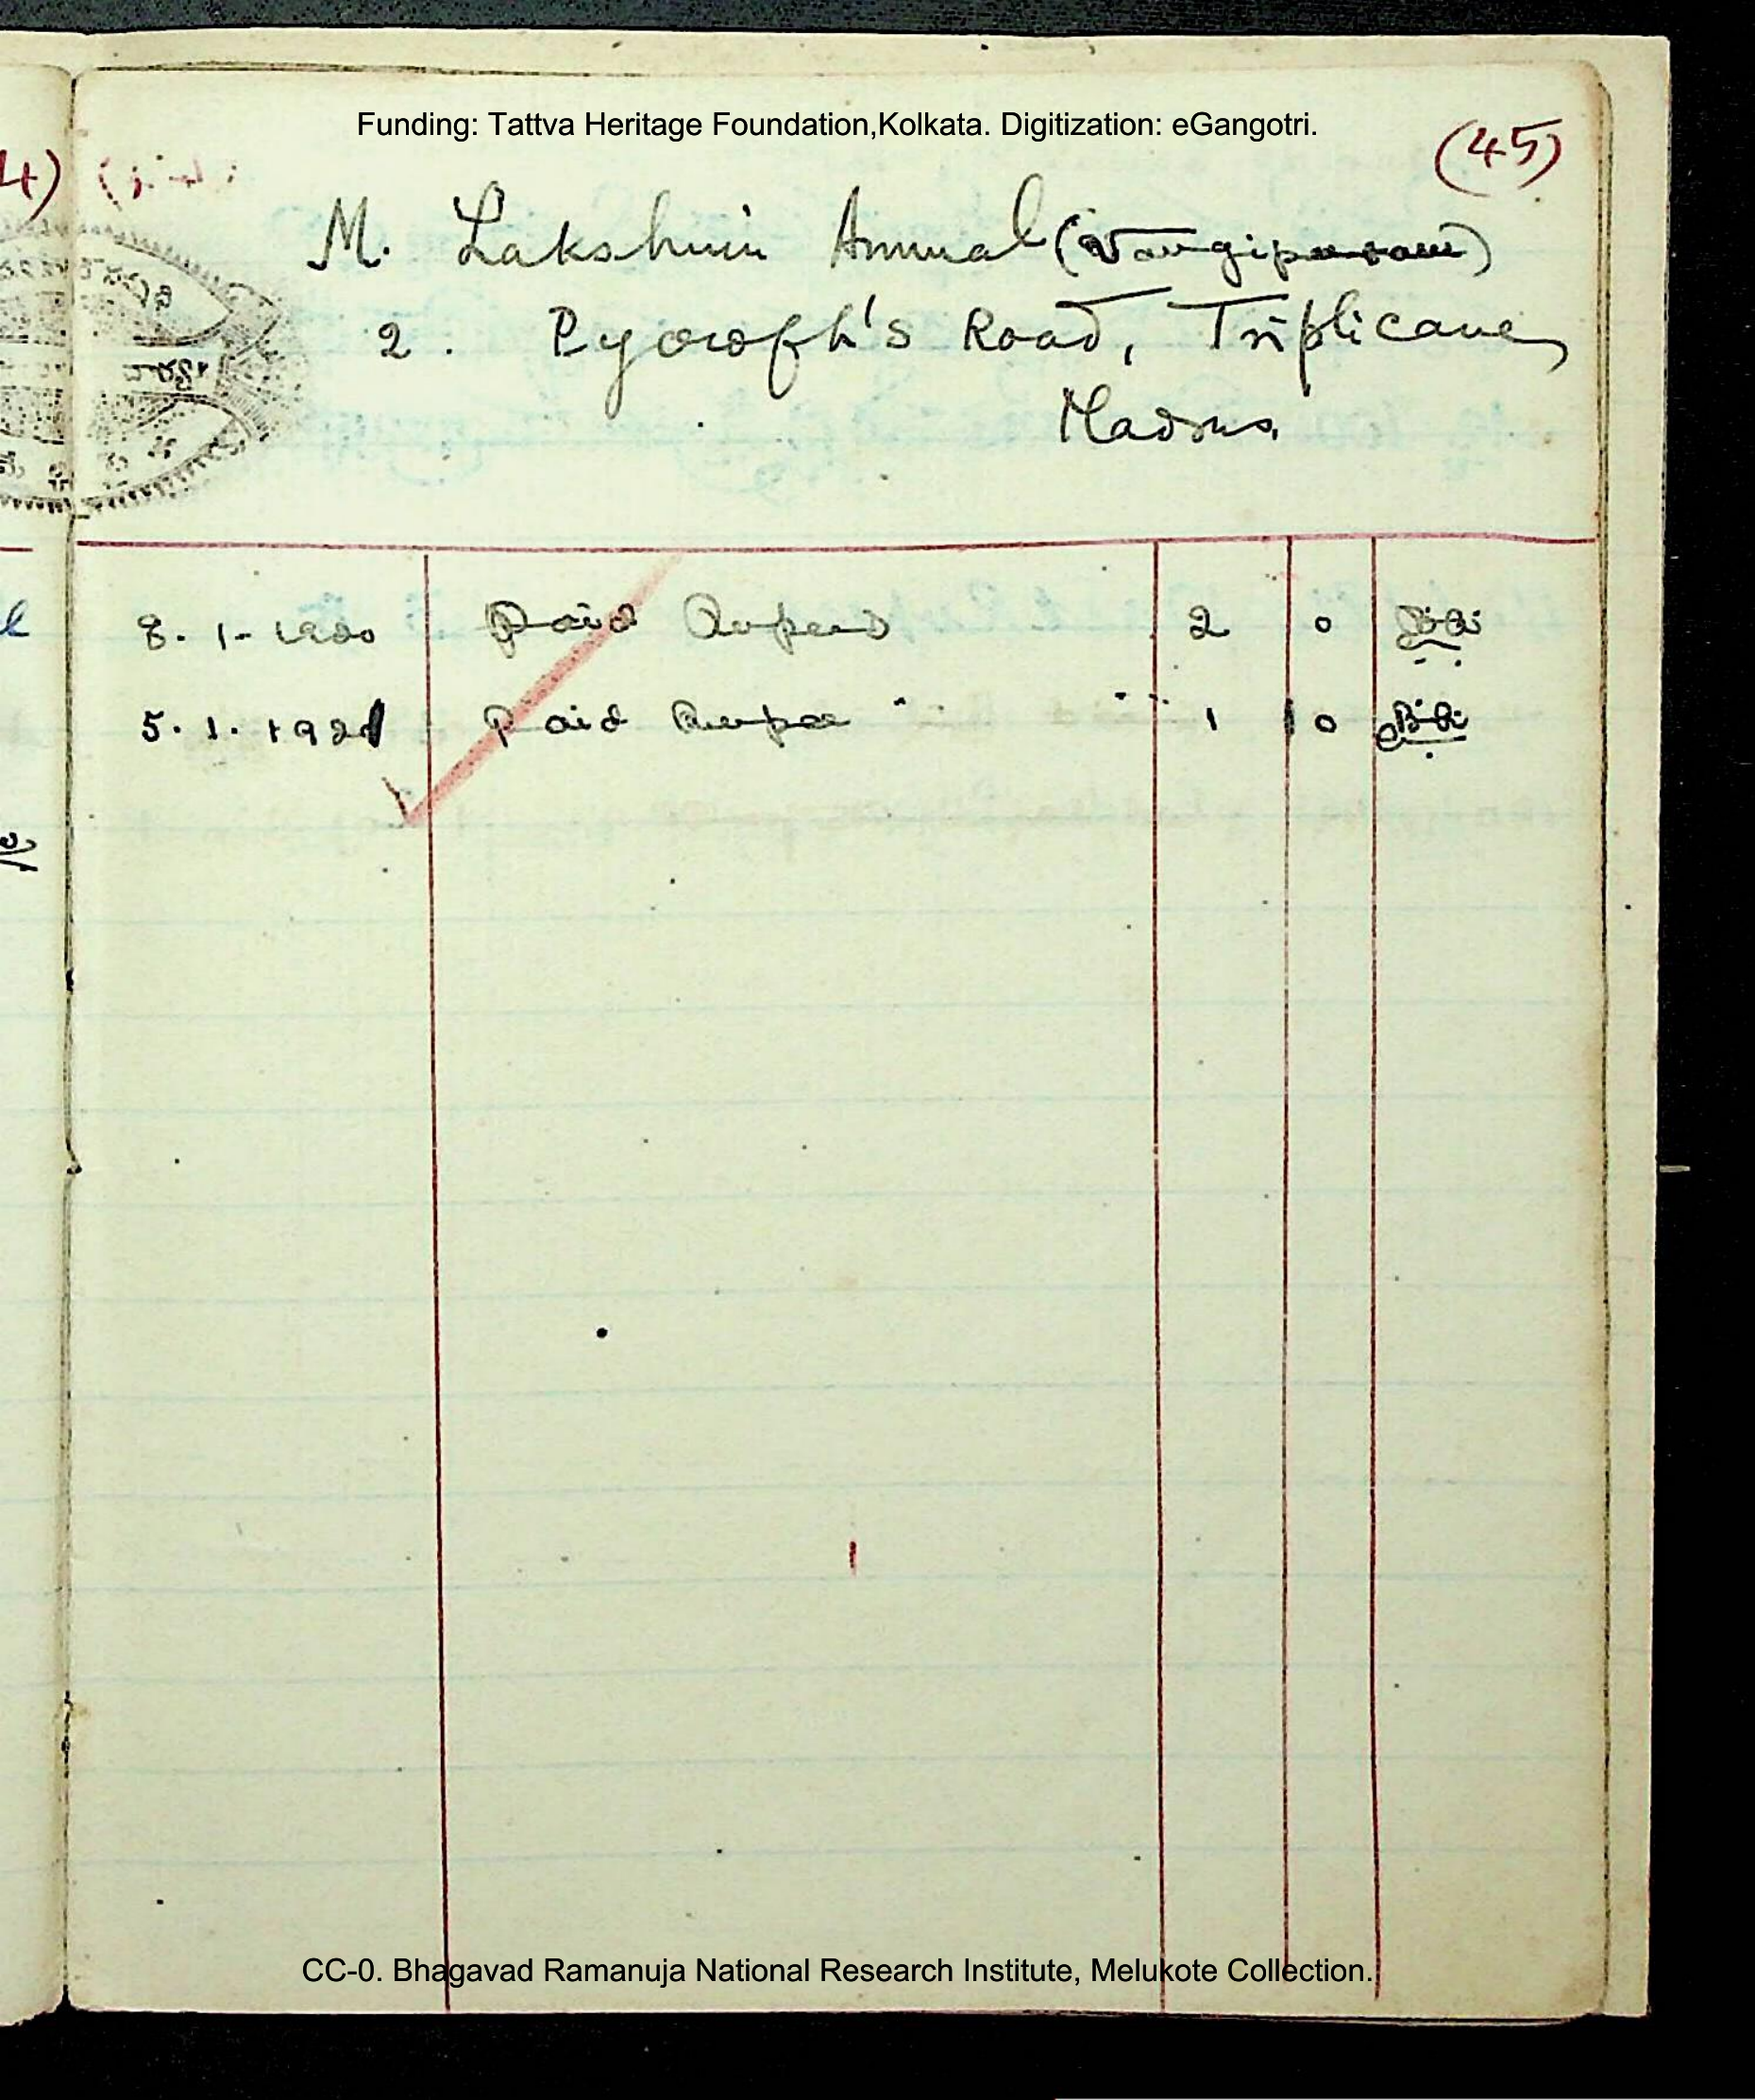 Funding: Tattva Heritage Foundation,Kolkata. Digitization: eGangotri.
(45)
M. Lakshmi Ammal (Vangipuram)
2. Pycroft's Road, Triplicane,
Madras.
8. 1- 1920 Paid Rupees 2 0
5. 1. 1921 Paid Rupee 1 0
CC-0. Bhagavad Ramanuja National Research Institute, Melukote Collection.